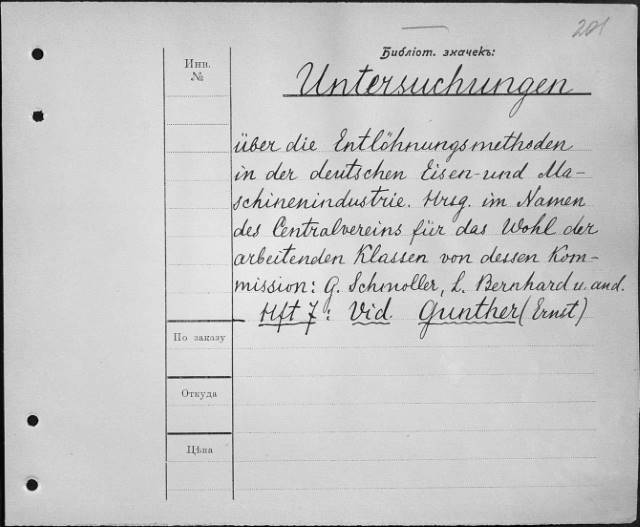 201
Библіот. значекъ:
Инв.
№
Untersuchungen
über die Entlöhnungsmethoden
in der deutschen Eisen- und Ma-
schinenindustrie. Hrsg. im Namen
des Centralvereins für das Wohl der
arbeitenden Klassen von dessen Kom-
mission: G. Schmoller, L. Bernhard u. and.
Hft 7: Vid. Gunther (Ernst)
По заказу
Откуда
Цѣна